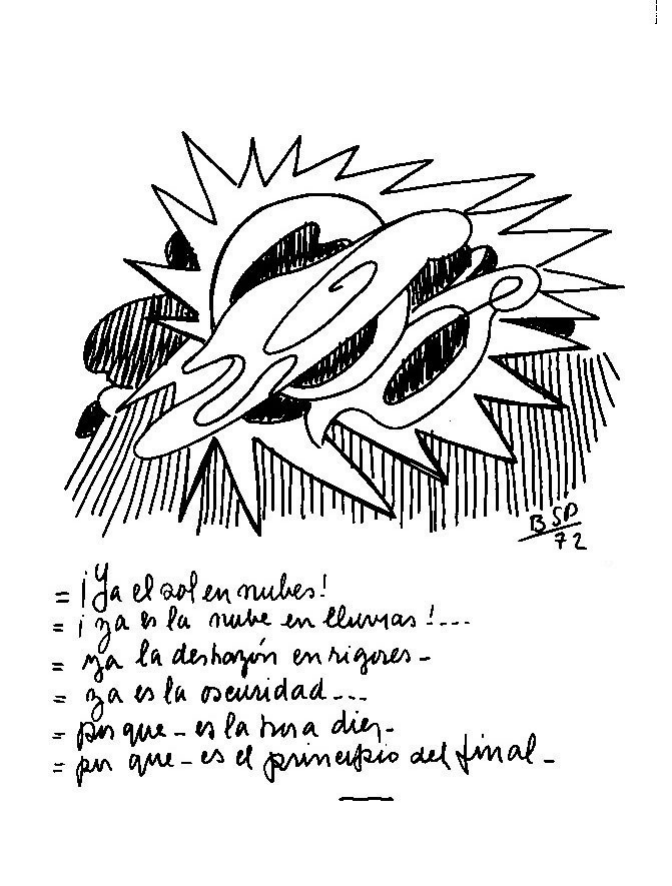 BSP
72
= ¡Ya el sol en nubes!
= ¡ya es la nube en lluvias!...
= ya la deshazón en rigores -
= ya es la oscuridad...
= por que - es la hora diez -
= por que - es el principio del final -